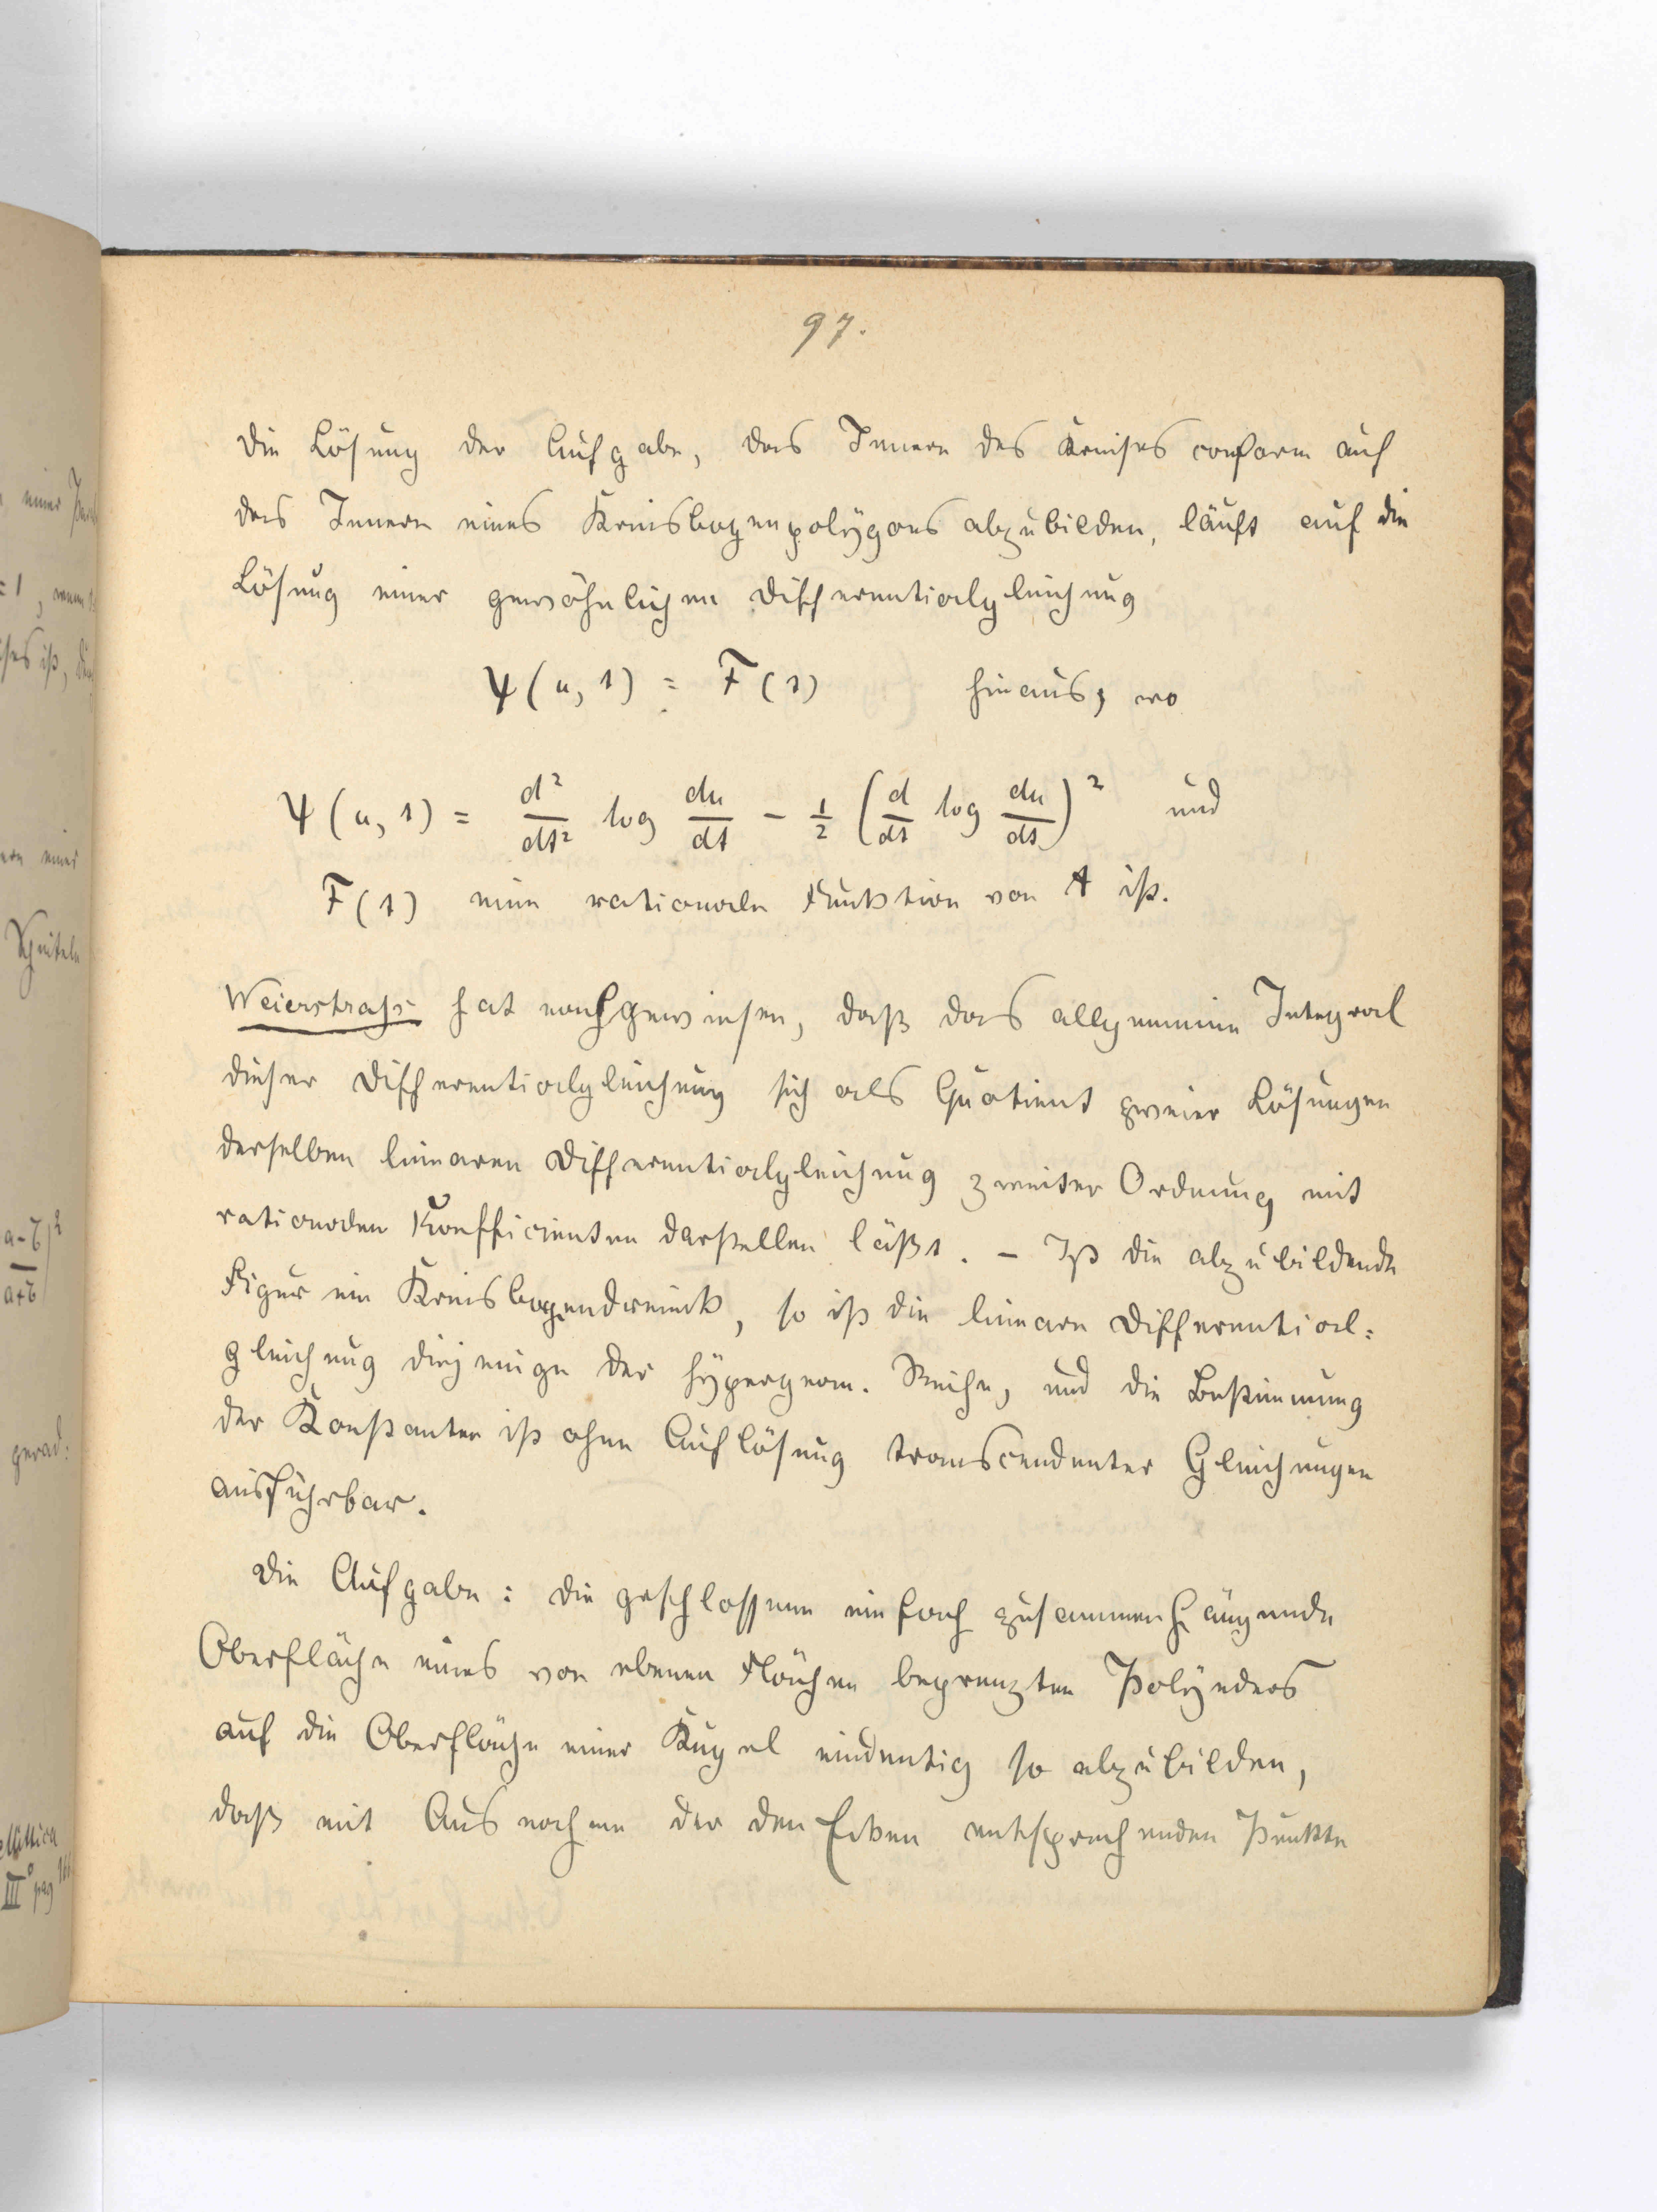 97.
Die Lösung der Aufgabe, das Innere des Kreises conform auf
das Innere eines Kreisbogenpolygons abzubilden, läuft auf die
Lösung einer gewöhnlichen Differentialgleichung
Ψ(u, t) = F(t) hinaus, wo
Ψ(u, t) = d²/dt² log du/dt − 1/2 (d/dt log du/dt)² und
F(t) eine rationale Funktion von t ist.
Weierstraß hat nachgewiesen, daß das allgemeine Integral
dieser Differentialgleichung sich als Quotient zweier Lösungen
derselben linearen Differentialgleichung zweiter Ordnung mit
rationalen Koefficienten darstellen läßt. – Ist die abzubildende
Figur ein Kreisbogendreieck, so ist die lineare Differential=
gleichung diejenige der hypergeom. Reihe, und die Bestimmung
der Konstanten ist ohne Auflösung transcendenter Gleichungen
ausführbar.
Die Aufgabe: die geschlossene einfach zusammenhängende
Oberfläche eines von ebenen Flächen begrenzten Polyeders
auf die Oberfläche einer Kugel eindeutig so abzubilden,
daß mit Ausnahme der den Ecken entsprechenden Punkte
einer
=1, wenn
ist,
einer
a-b)²
a+b
gerad:
III° pag